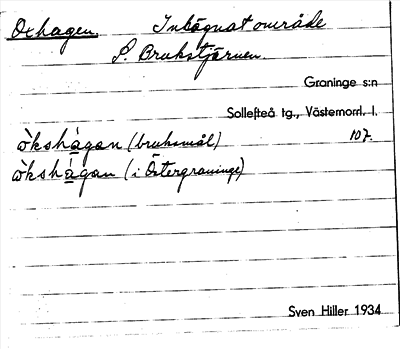 Oxhagen. Inhägnat område
S. Brukstjärnen.
Graninge s:n
Sollefteå tg., Västernorrl. l.
ò̀kshàgan (bruksmål) 107.
ò̀kshàgan (i Östergraninge)
Sven Hiller 1934